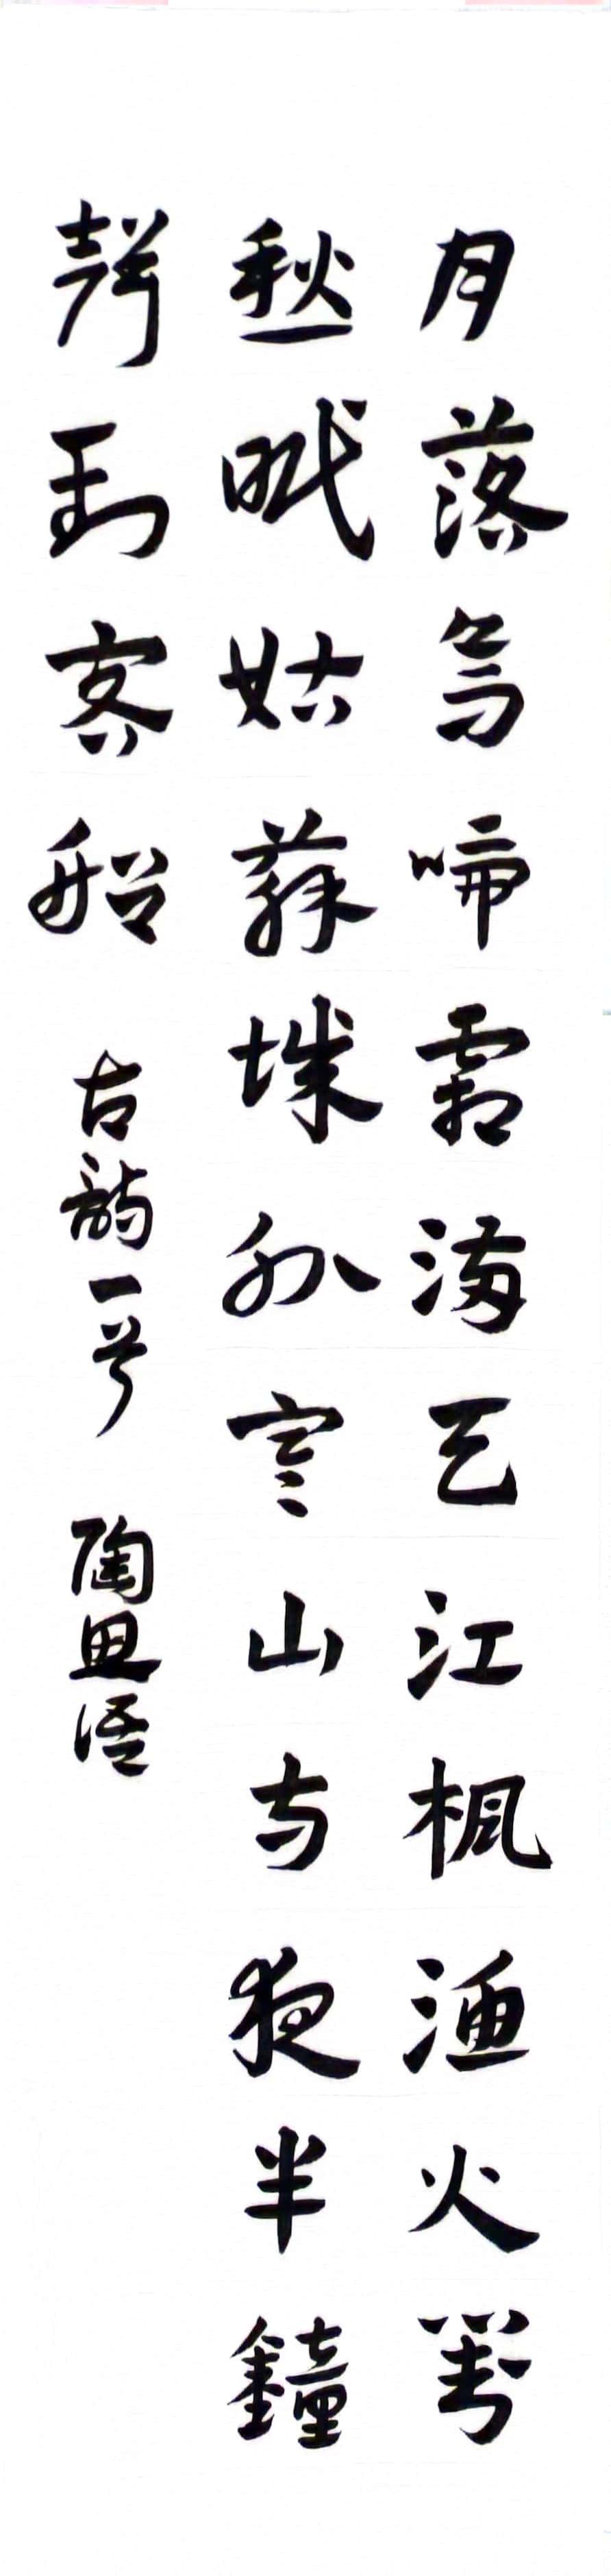 月落烏啼霜滿天江楓漁火對
愁眠姑蘇城外寒山寺夜半鐘
聲到客船 古韵一首 陶思语